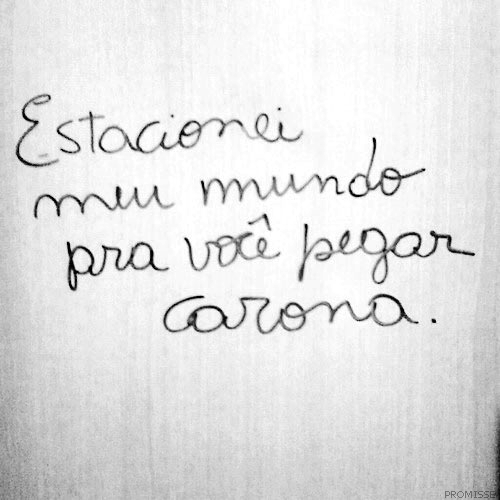 Estacionei
meu mundo
pra você pegar
carona.
PROMISSE